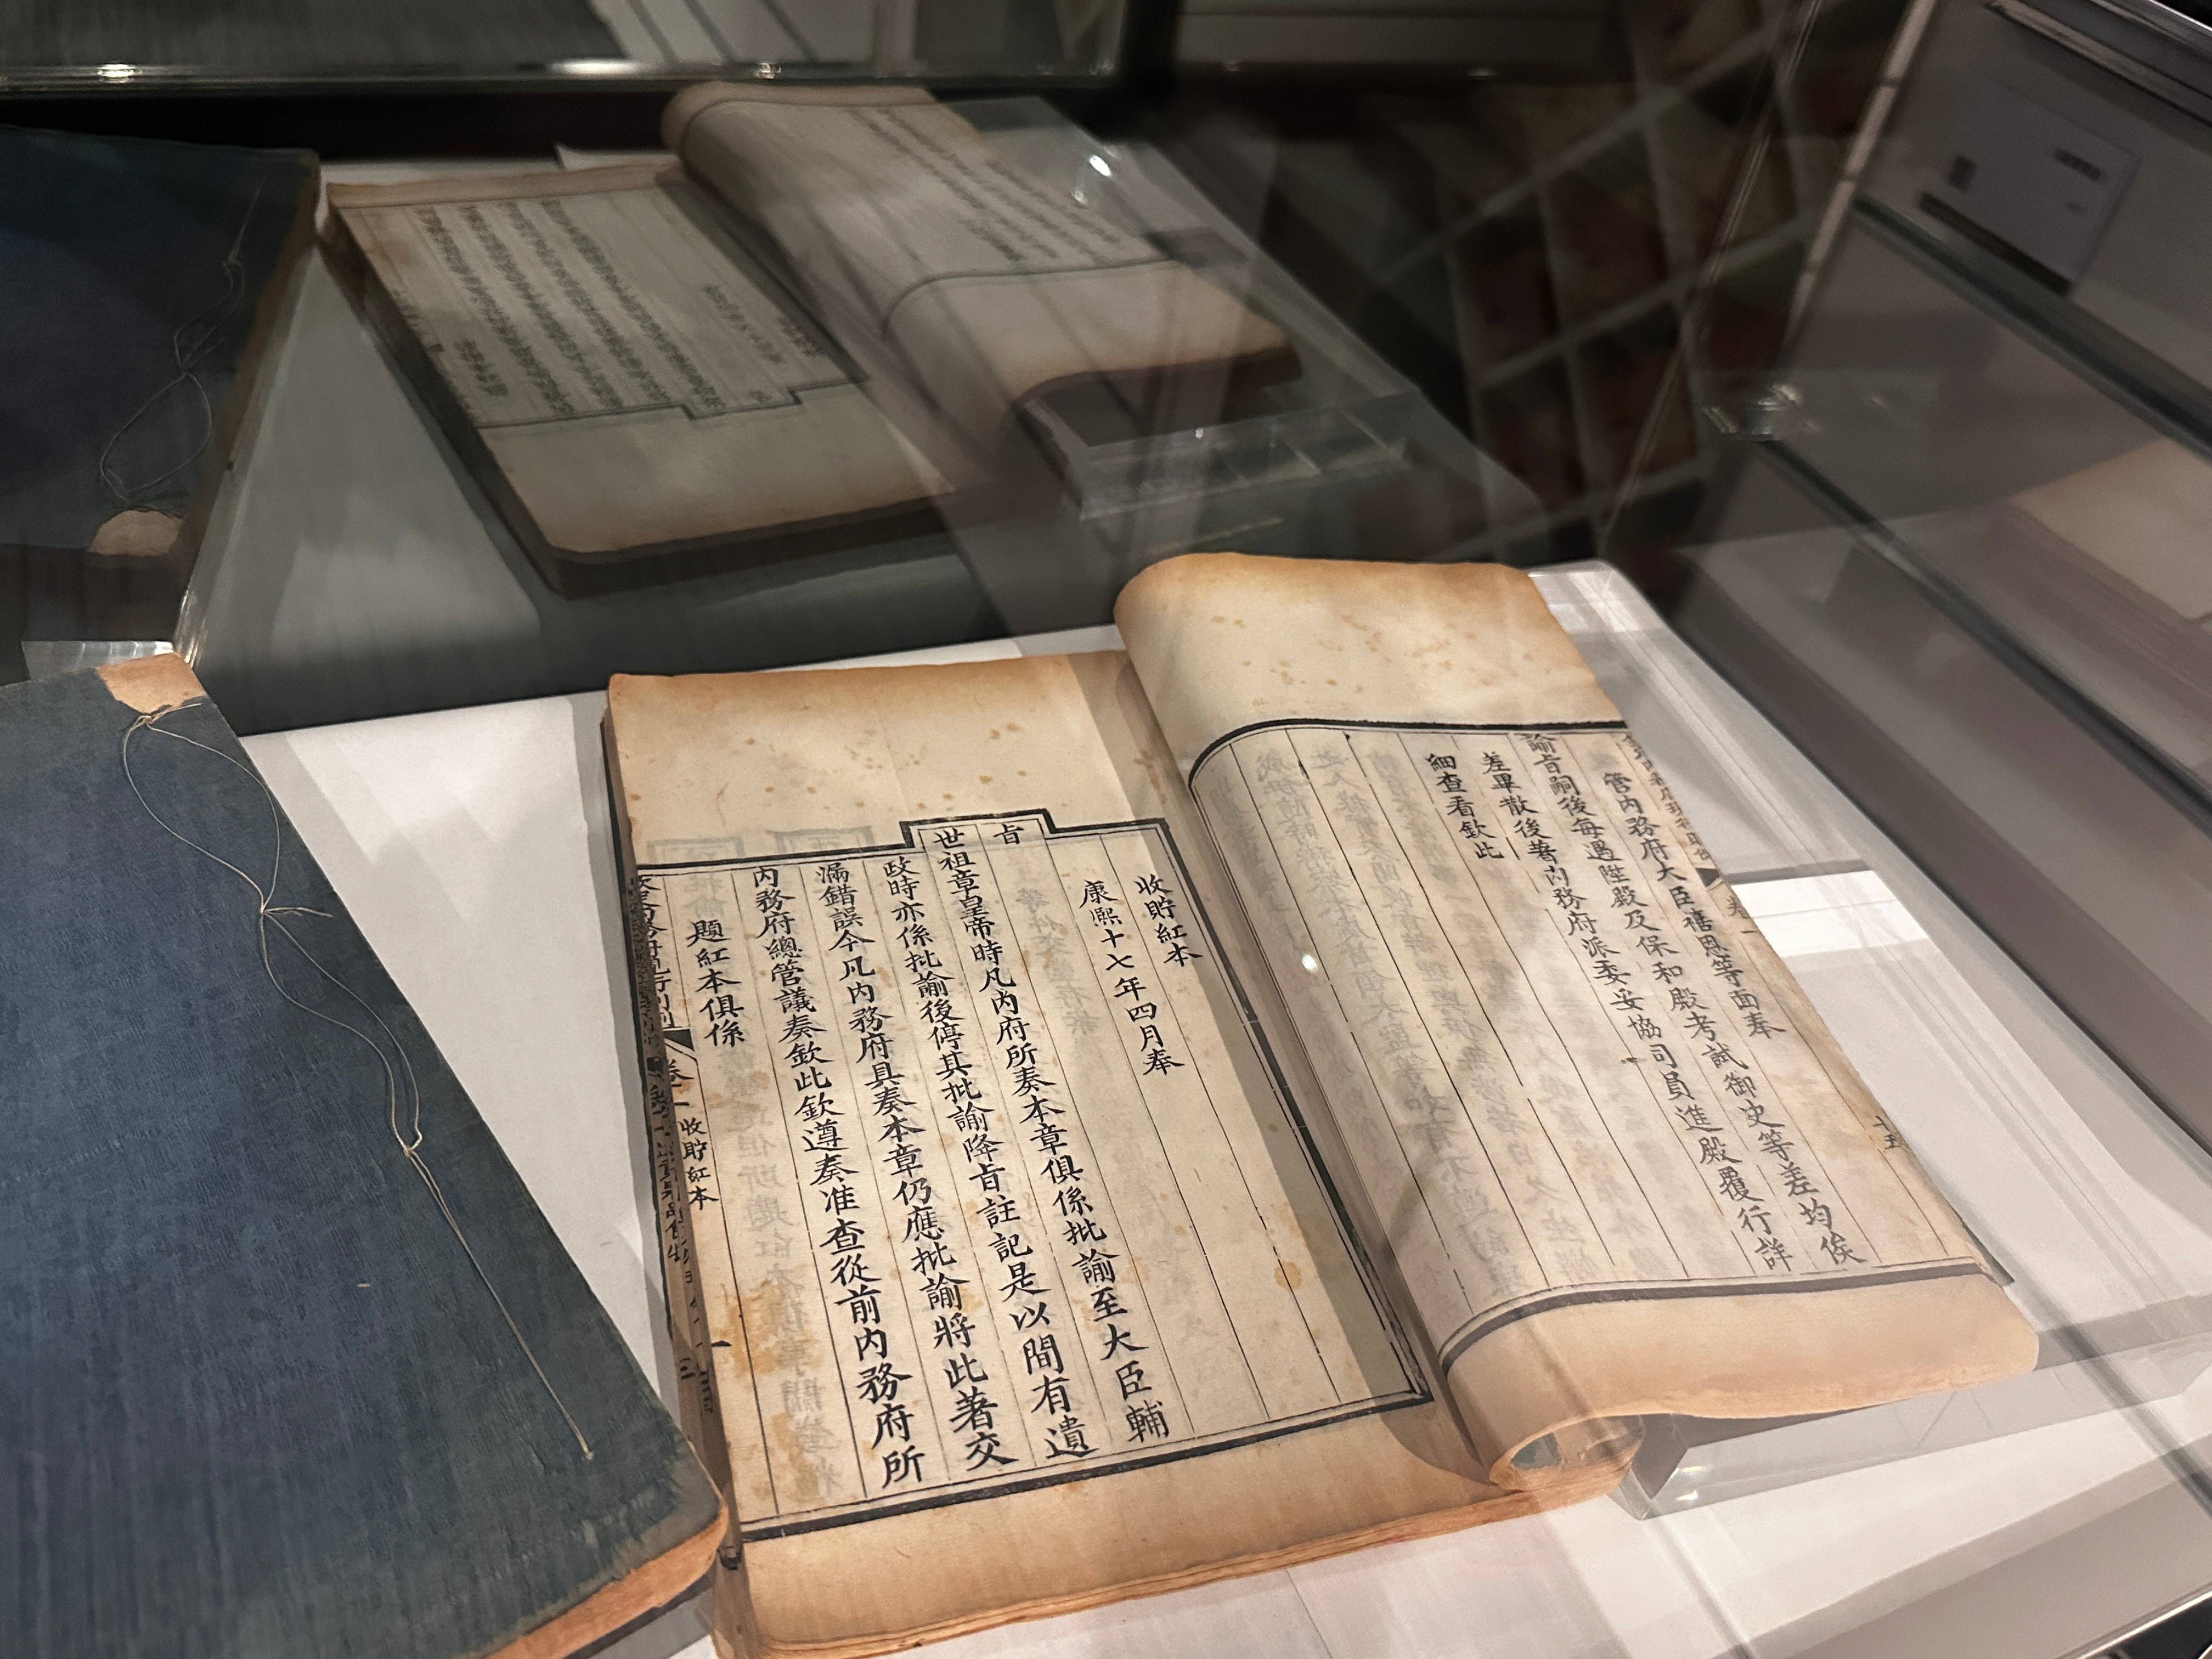 卷一
十五
管內務府大臣禧恩等面奉
諭旨嗣後每遇陞殿及保和殿考試御史等差均俟
差畢散後著內務府派委妥協司員進殿覆行詳
細查看欽此
收貯紅本
康熙十七年四月奉
旨
世祖章皇帝時凡內府所奏本章俱係批諭至大臣輔
政時亦係批諭後停其批諭降旨註記是以間有遺
漏錯誤今凡內務府具奏本章仍應批諭將此著交
內務府總管議奏欽此欽遵奏准查從前內務府所
題紅本俱係
卷一
收貯紅本